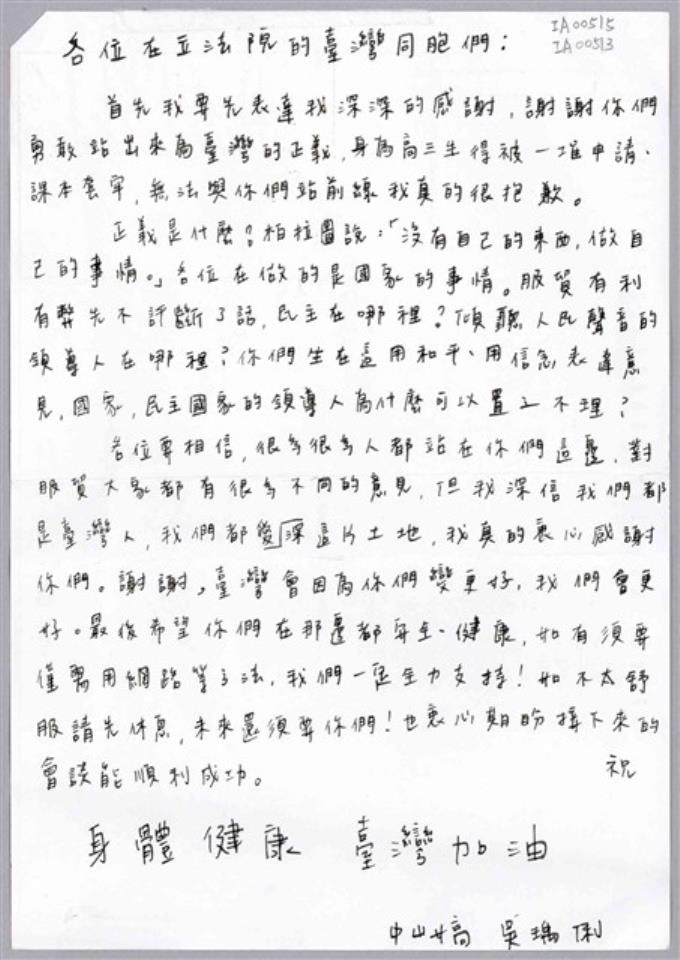 IA00515
IA00513
各位在立法院的臺灣同胞們：
首先我要先表達我深深的感謝，謝謝你們
勇敢站出來為臺灣的正義，身為高三生得被一堆申請、
課本套牢，無法與你們站前線我真的很抱歉。
正義是什麼？柏拉圖說：「沒有自己的東西，做自
己的事情。」各位在做的是國家的事情。服貿有利
有弊先不評斷了話，民主在哪裡？傾聽人民聲音的
領導人在哪裡？你們坐在這用和平、用信念表達意
見，國家，民主國家的領導人為什麼可以置之不理？
各位要相信，很多很多人都站在你們這邊，對
服貿大家都有很多不同的意見，但我深信我們都
是臺灣人，我們都愛深這片土地，我真的衷心感謝
你們。謝謝，臺灣會因為你們變更好，我們會更
好。最後希望你們在那邊都安全、健康，如有須要
僅需用網路等方法，我們一定全力支持！如不太舒
服請先休息，未來還須要你們！也衷心期盼接下來的
會談能順利成功。 祝
身體健康 臺灣加油
中山女高 吳瑀俐